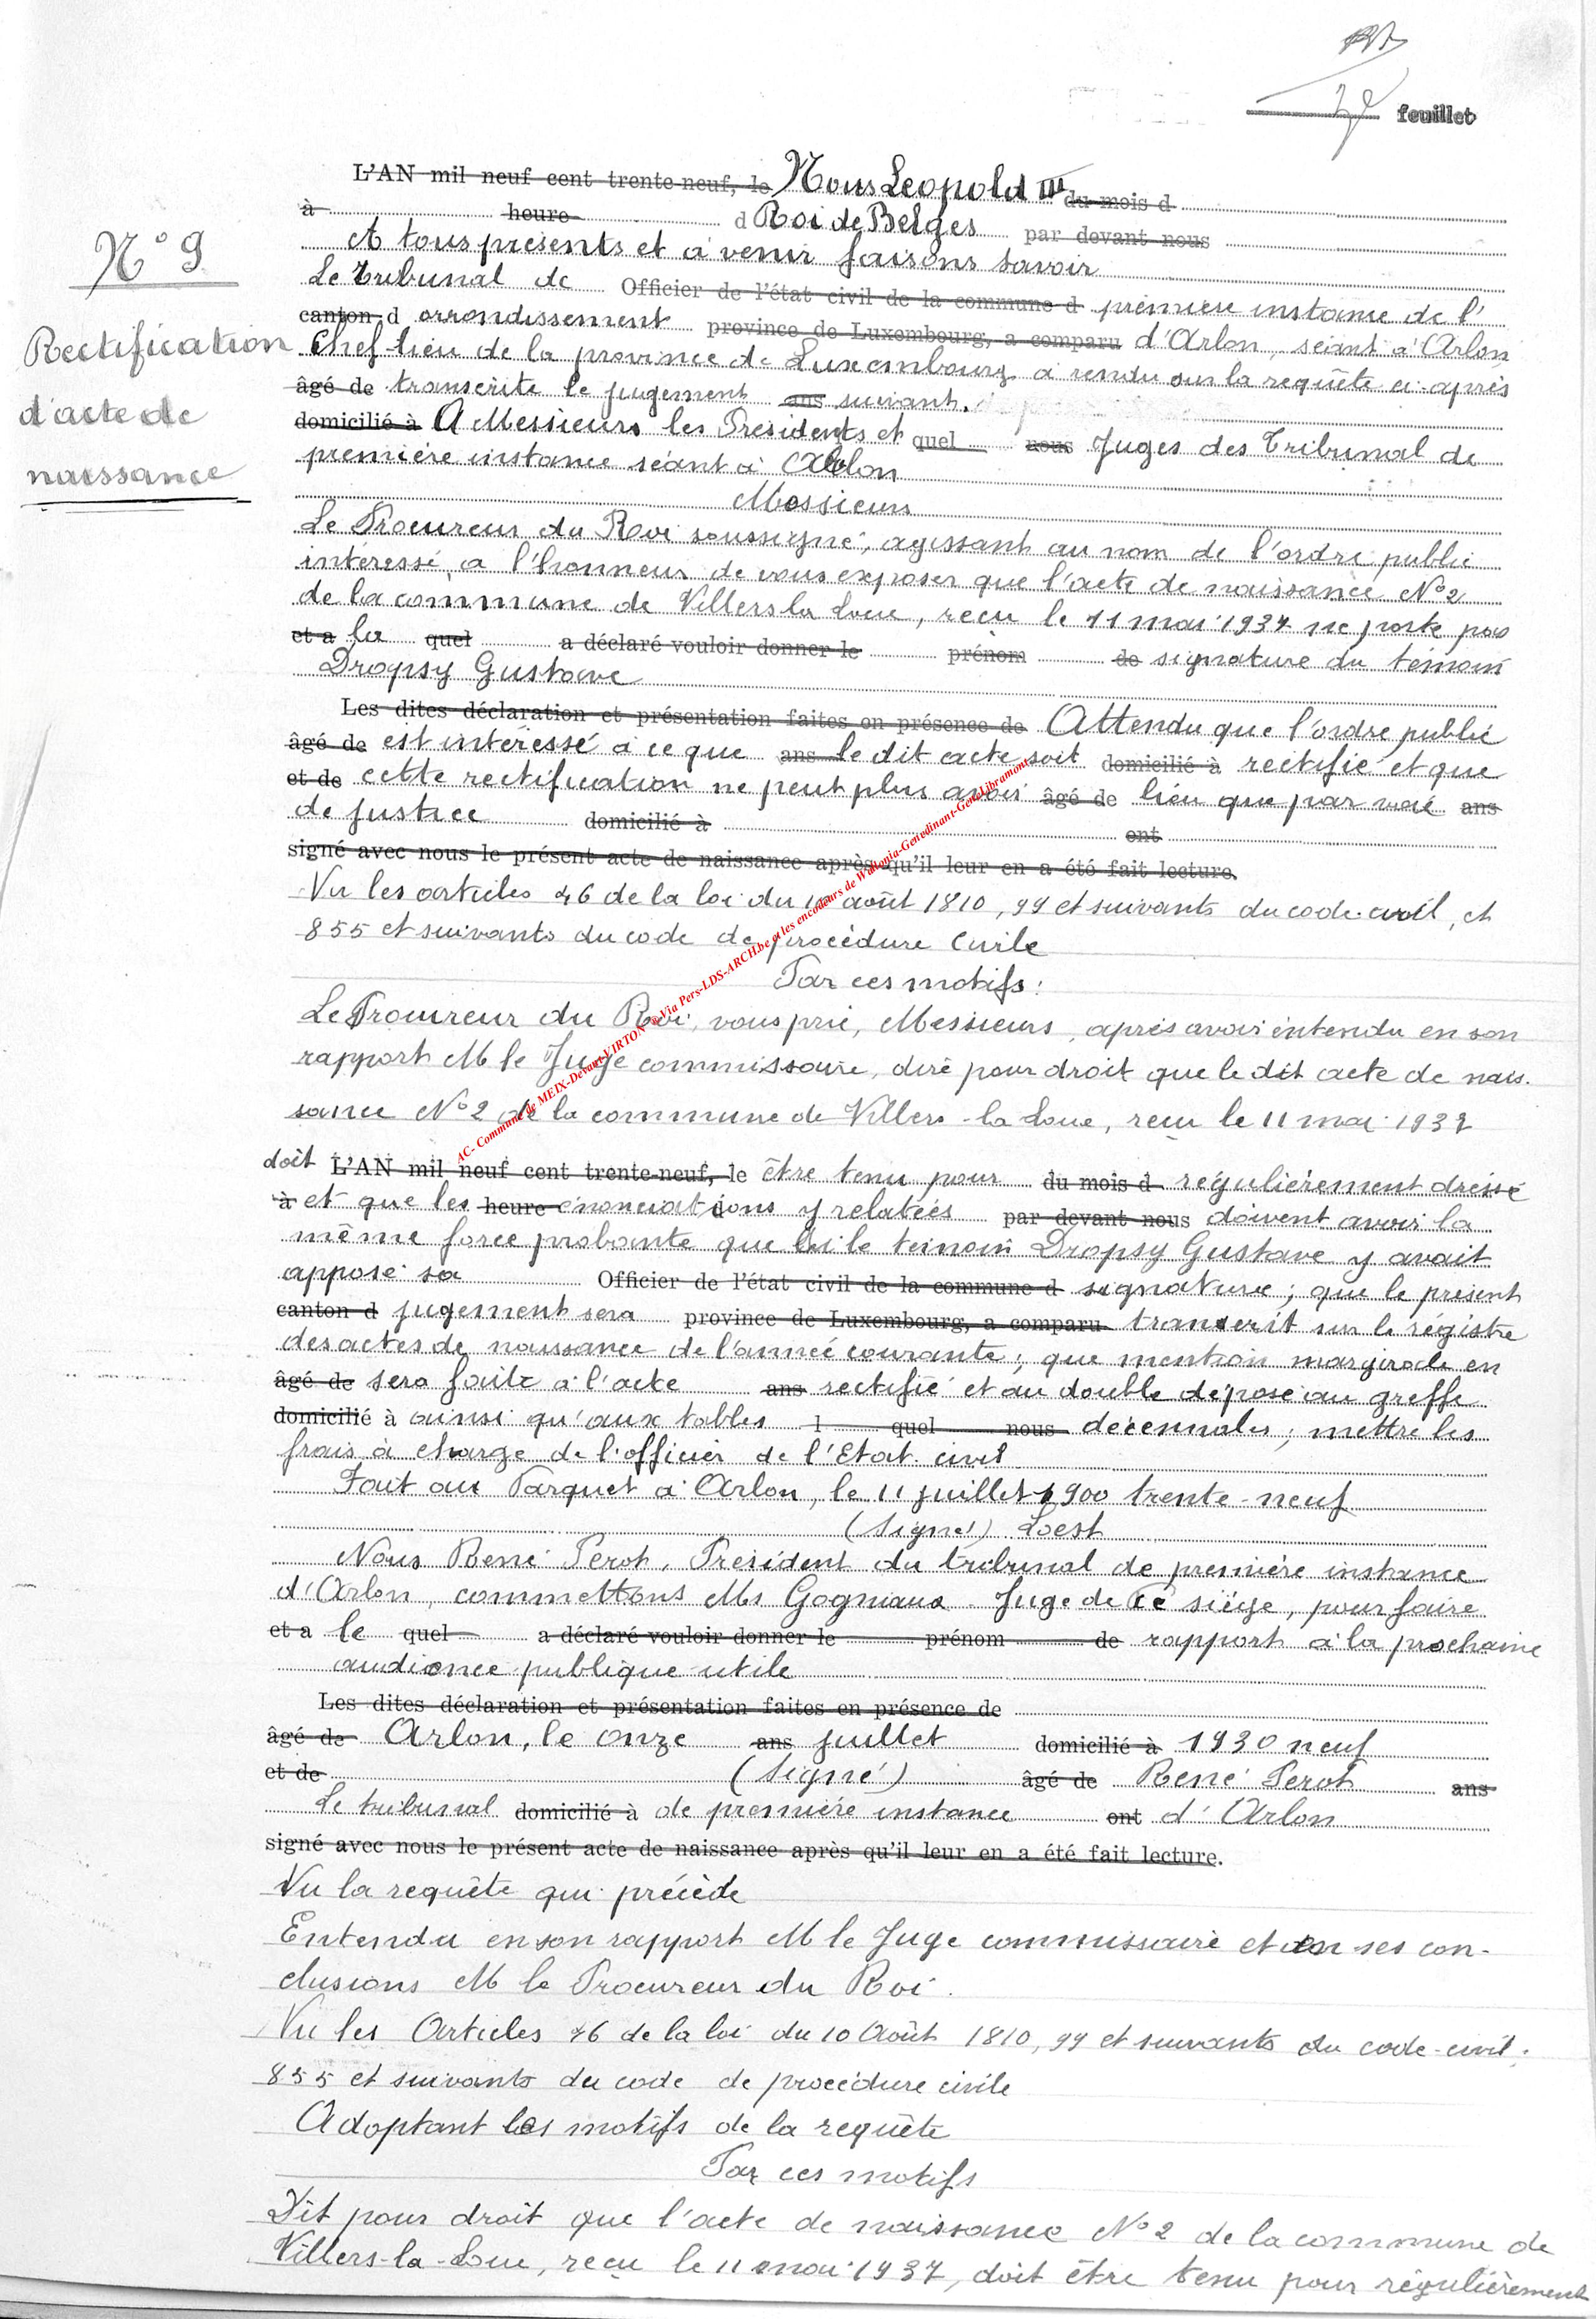 feuillet
N° 9
Rectification
d'acte de
naissance
L'AN mil neuf cent trente-neuf, le Nous Leopold III du mois d
à heure d Roi de Belges par devant nous
A tous présents et à venir faisons savoir
Le tribunal de Officier de l'état civil de la commune d première instance de l'
canton d arrondissement province de Luxembourg, a comparu d'Arlon, séant à Arlon
Chef-lieu de la province de Luxembourg a rendu sur la requête ci-après
âgé de transcrite le jugement ans suivant.
domicilié à A Messieurs les Présidents et quel nous Juges des Tribunal de
première instance séant à Arlon
Messieurs
Le Procureur du Roi soussigné, agissant au nom de l'ordre public
intéressé, a l'honneur de vous exposer que l'acte de naissance N°2
de la commune de Villers la Loue, reçu le 11 mai 1937 ne porte pas
et a la quel a déclaré vouloir donner le prénom de signature du témoin
Dropsy Gustave
Les dites déclaration et présentation faites en présence de Attendu que l'ordre public
âgé de est intéressé à ce que ans le dit acte soit domicilié à rectifié et que
et de cette rectification ne peut plus avoir âgé de lieu que par voie ans
de justice domicilié à ont
signé avec nous le présent acte de naissance après qu'il leur en a été fait lecture.
Vu les articles 46 de la loi du 10 août 1810, 99 et suivants du code civil, et
855 et suivants du code de procédure Civile
Par ces motifs:
Le Procureur du Roi, vous prie, Messieurs, après avoir entendu en son
rapport M le Juge commissaire, dire pour droit que le dit acte de nais.
sance N°2 de la commune de Villers-la Loue, reçu le 11 mai 1937
doit L'AN mil neuf cent trente-neuf, le être tenu pour du mois d régulièrement dressé
à et que les heure énonciations y relatées par devant nous doivent avoir la
même force probante que si le témoin Dropsy Gustave y avait
apposé sa Officier de l'état civil de la commune d signature; que le présent
canton d jugement sera province de Luxembourg, a comparu transcrit sur le registre
des actes de naissance de l'année courante; que mention marginale en
âgé de sera faite à l'acte ans rectifié et au double déposé au greffe
domicilié à ainsi qu'aux tables l quel nous décennales; mettre les
frais à charge de l'officier de l'Etat civil
Fait au Parquet à Arlon, le 11 juillet 1900 trente-neuf
(signé) Loest
Nous René Perot, Président du tribunal de première instance
d'Arlon, commettons Mr Gogniaux Juge de ce siège, pour faire
et a le quel a déclaré vouloir donner le prénom de rapport à la prochaine
audience publique utile
Les dites déclaration et présentation faites en présence de
âgé de Arlon, le onze ans juillet domicilié à 1930 neuf
et de (signé) âgé de René Perot ans
Le tribunal domicilié à de première instance ont d'Arlon
signé avec nous le présent acte de naissance après qu'il leur en a été fait lecture.
Vu la requête qui précède
Entendu en son rapport M le Juge commissaire et en ses con-
clusions M le Procureur du Roi.
Vu les Articles 46 de la loi du 10 Août 1810, 99 et suivants du code civil;
855 et suivants du code de procédure civile
Adoptant les motifs de la requête
Par ces motifs
Dit pour droit que l'acte de naissance N°2 de la commune de
Villers-la-Loue, reçu le 11 mai 1937, doit être tenu pour régulièrement
AC- Commune de MEIX-Devant-VIRTON @Via Pers-LDS-ARCH.be et les encodeurs de Wallonia-Genedinant-GeneLibramont